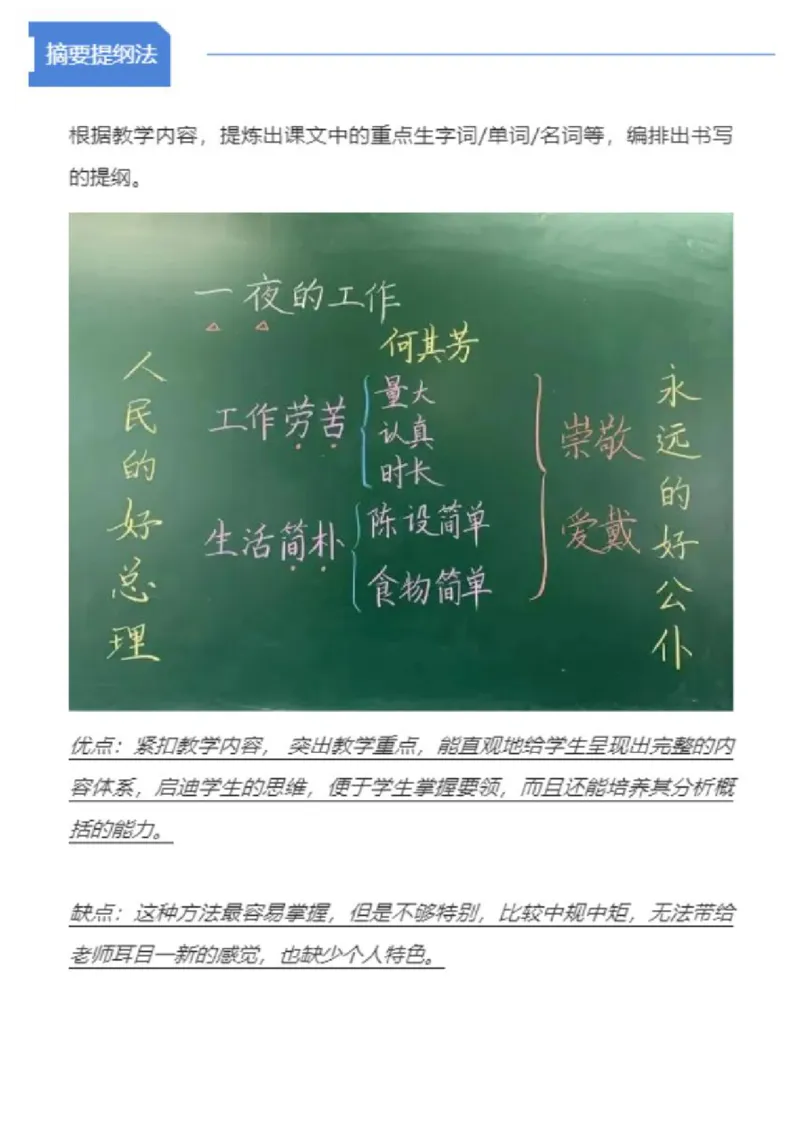 摘要提纲法
根据教学内容，提炼出课文中的重点生字词/单词/名词等，编排出书写
的提纲。
一夜的工作
何其芳
人民的好总理
工作劳苦
量大
认真
时长
生活简朴
陈设简单
食物简单
崇敬
爱戴
永远的好公仆
优点：紧扣教学内容， 突出教学重点，能直观地给学生呈现出完整的内
容体系，启迪学生的思维，便于学生掌握要领，而且还能培养其分析概
括的能力。
缺点：这种方法最容易掌握，但是不够特别，比较中规中矩，无法带给
老师耳目一新的感觉，也缺少个人特色。